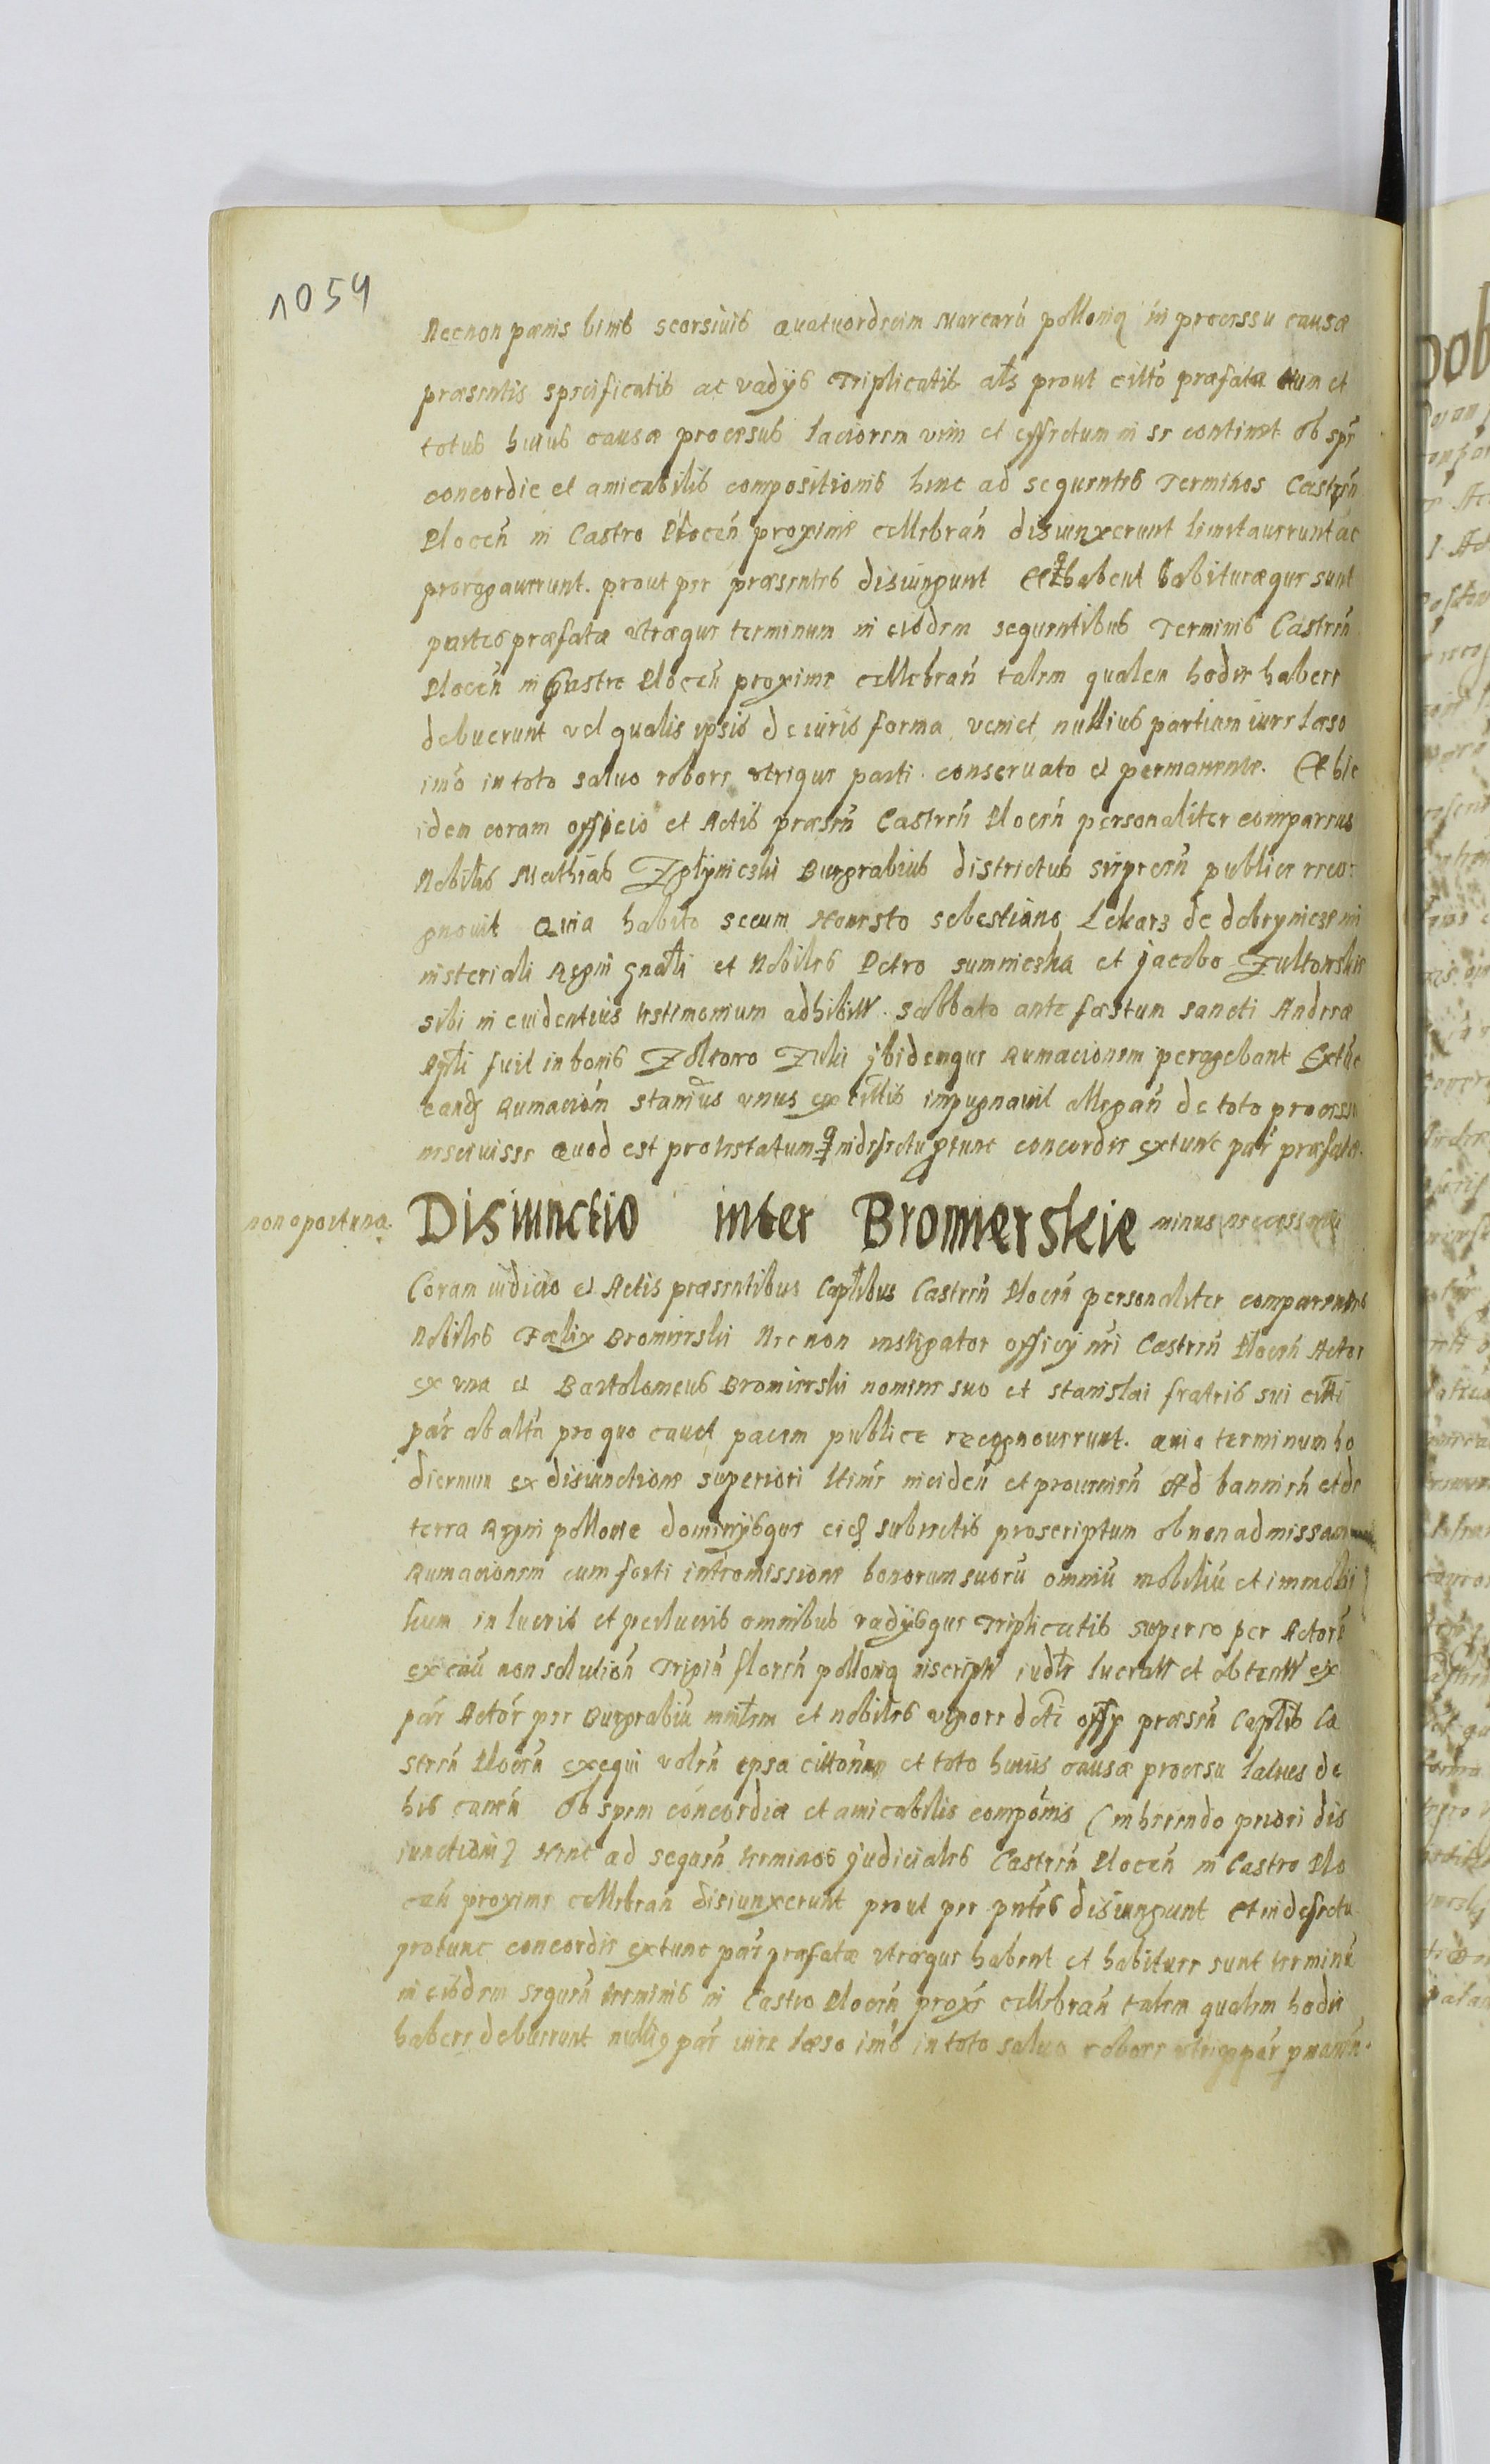 1054
Necnon pænis binis seorsivis Quatuordecim Marcarū polloniq̨ in processu causæ
præsentis specificatis ac vadijs Triplicatis als prout citto præfata tum et
totus huius causæ processus laciorem vim et effectum in se continet ob spē
concordie et amicabilis compositionis hinc ad sequentes Terminos Castreń
Ploceń in Castro Ploceń proxime cellebrań disiunxerunt limitauerunt ac
prorogauerunt. prout per præsentes disiungunt habent habituræque sunt
partes præfatæ vtræque terminum in eisdem sequentibus Terminis Castreń
Ploceń in Castro Ploceń proxime cellebrań talem qualem hodie habere
debuerunt vel qualis ipsis de iuris forma veniet nullius partium iure læso
imō in toto saluo robore vtrique parti conseruato et permanente. Et hic
idem coram officio et Actis præseń Castreń Ploceń personaliter comparens
Nobilis Mathias Burgrabius districtus publice reco:
gnouit Quia habito secum Honesto sebestiano Lekarz de dobrynicze mi
nisteriali Regni gnāli et Nobiles Petro et jacobo
sibi in euidentius testimonium adhibitt. sabbato ante fæstum sancti Andreæ
Apłi fuit in bonis jbidemque Rumacionem peragebant Extūc
eandē Rumacioń stanīus vnus ex cittis impugnauit allegań de toto processu
nesciuisse Quod est protestatum in defectu protunc concordie extunc paŕ præfatæ.
non oportuna. Disiunctio inter Bromierskie minus necess
Coram iudicio et Actis præsentibus Capłibus Castreń Ploceń personaliter comparentes
Nobiles Fælix Bromierski Nec non instigator officij nrī Castreń Ploceń Actor
ex vna et Bartolomeus Bromierski nomine suo et stanislai fratris sui citti
paŕ ab altā pro quo cauet pacem publice recognouerunt. quia terminum ho
diernum ex disiunctione superiori ltime incideń et proueniēn Ad bannień et de
terra Regni pollonie dominijsque eidē subiectis proscriptum ob non admissam
Rumacionem cum forti intromissione bonorum suorū omniū mobiliū et immobi
lium in lucris et perlucris omnibus vadijsque Triplicatis super eo per Actorē
ex cau non solutioń Trigin floreń polloniq̨ inscriptt iudłr lucratt et obtentt ex
paŕ Actoŕ per Burgrabiū minłrem et nobiles vigore dcti offy præseń Capłis Ca
streń Ploceń exequi voleń ipsa cittōne et toto huius causæ processu lacius de
his caneń Ob spem concordiæ et amicabilis compōnis (inherendo priori dis
iunctioni) Hinc ad sequeń terminos judiciales Castreń Ploceń in Castro Plo
ceń proxime cellebrań disiunxerunt prout per pntes disiungunt Et in defectu
protunc concordie extunc paŕ præfatæ vtræque habent et habituræ sunt terminū
in eisdem sequeń terminis in Castro Ploceń proxē cellebrań talem qualem hodie
habere debuerunt nulliq̨ paŕ iure læso imō in toto saluo robore vtriq̨ paŕ pmaneń.